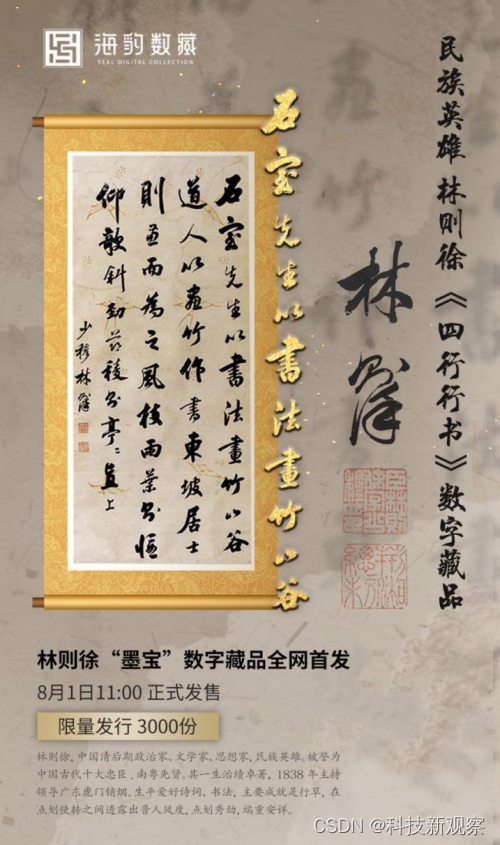 海豹数藏
SEAL DIGITAL COLLECTION
民族英雄 林则徐《四行行书》数字藏品
林則徐
石室先生以書法畫竹山谷
石室先生以書法畫竹山谷
道人以畫竹作書東坡居士
則並而為之風枝雨葉則偃
仰欹斜勁節稜則亭〻直上
少穆林則徐
林则徐“墨宝”数字藏品全网首发
8月1日11:00 正式发售
限量发行 3000份
林则徐,中国清后期政治家、文学家、思想家,民族英雄。被誉为
中国古代十大忠臣、南粤先贤。其一生治绩卓著, 1838 年主持
领导广东虎门销烟。生平爱好诗词、书法, 主要成就是行草, 在
点划使转之间透露出晋人风度,点划秀劲,端重安详。
CSDN @科技新观察